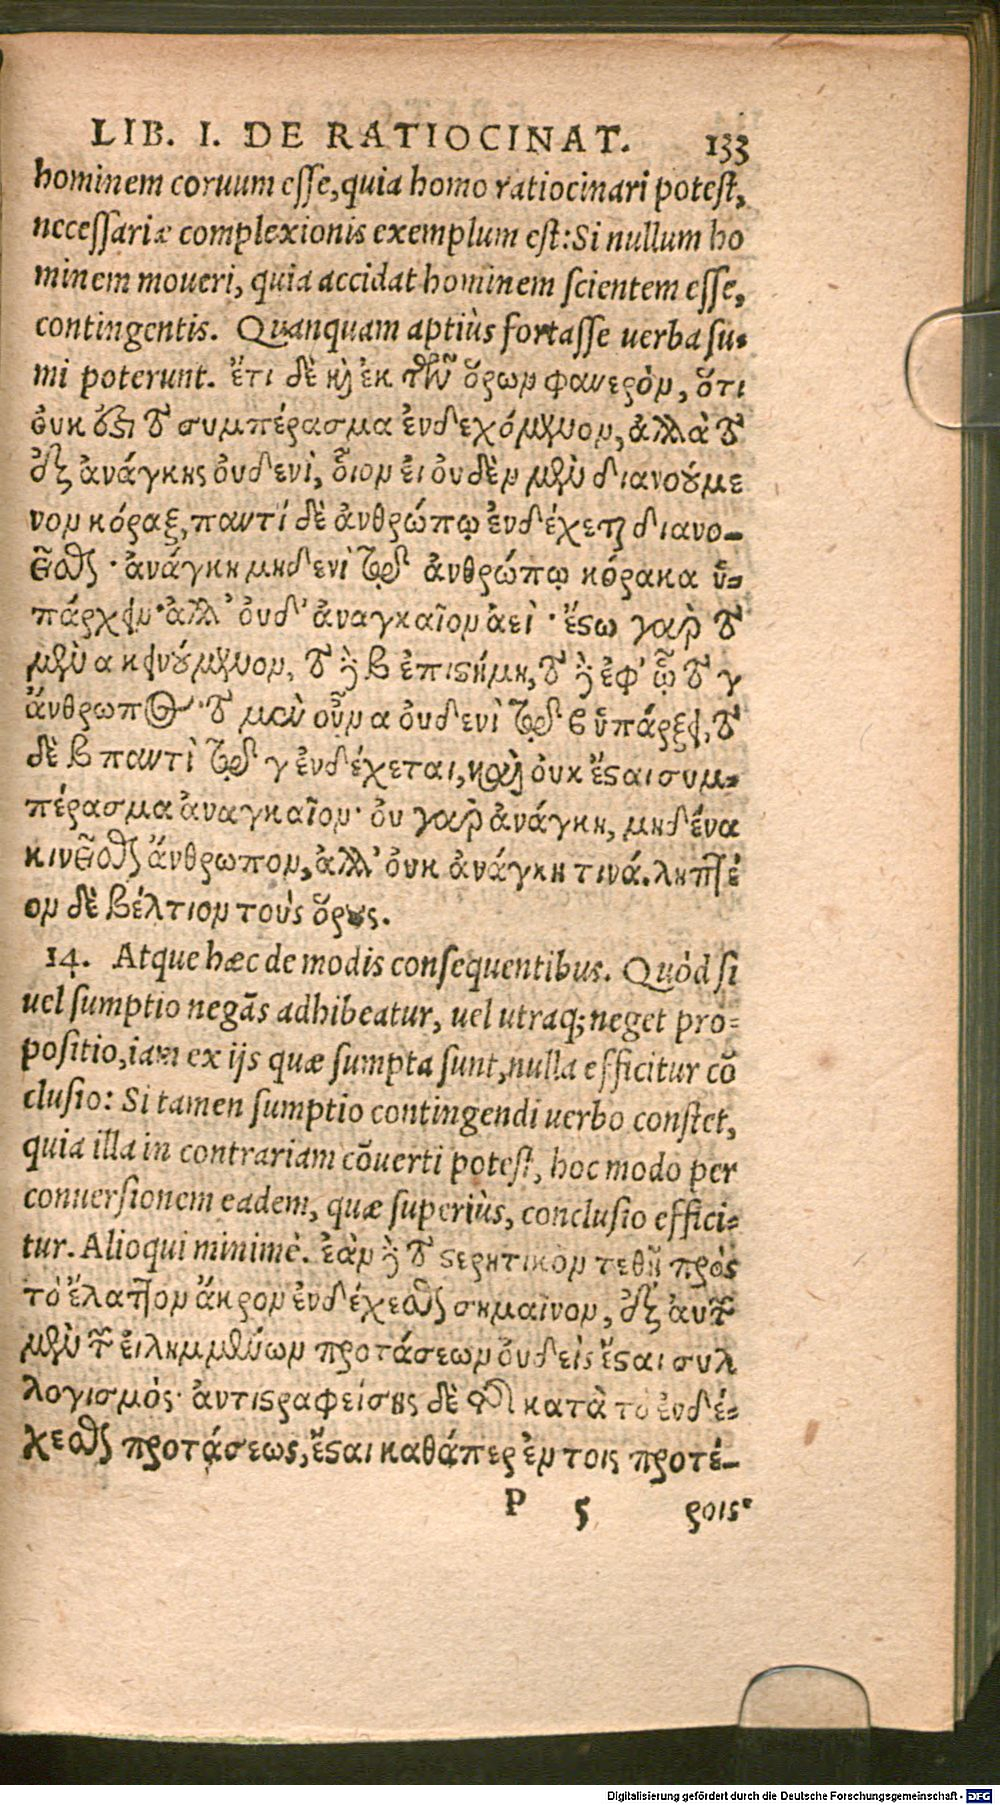 LIB. I. DE RATIOCINAT. 133
hominem coruum esse, quia homo ratiocinari potest,
necessariæ complexionis exemplum est: Si nullum ho
minem moueri, quia accidat hominem scientem esse,
contingentis. Quanquam aptiùs fortasse uerba su-
mi poterunt. ἔτι δὲ κὶ ἐκ τῶν ὅρων φανερὸν, ὅτι
ὀυκ ἔσαι τὸ συμπέρασμα ἐνδεχόμενον, ἀλλὰ τὸ
ἐξ ἀνάγκης ὀυδενὶ, ὃιον ἐι ὀυδὲν μὲν διανούμε
νον κόραξ, παντί δὲ ἀνθρώπῳ ἐνδέχεται διανο-
εῖσθαι · ἀνάγκη μηδενὶ τῷ ἀνθρώπῳ κόρακα ὑ-
πάρχειν· ἀλλ' ὀυδ' ἀναγκαῖον ἀεὶ · ἔςω γαρ τὸ
μὲν α κινούμενον, τὸ δὲ β ἐπιςήμη, τὸ δὲ ἐφ' ᾧ τὸ γ
ἄνθρωπος· τὸ μὲν οὖν α ὀυδενὶ τῷ β ὑπάρξει, τὸ
δὲ β παντὶ τῷ γ ἐνδέχεται, καὶ ὀυκ ἔςαι συμ-
πέρασμα ἀναγκαῖον· ὀυ γαρ ἀνάγκη, μηδένα
κινεῖσθαι ἄνθρωπον, ἀλλ' ὀυκ ἀνάγκη τινά. ληπτέ
ον δὲ βέλτιον τοὺς ὅρους.
14. Atque hæc de modis consequentibus. Quòd si
uel sumptio negãs adhibeatur, uel utraq; neget pro-
positio, iam ex ijs quæ sumpta sunt, nulla efficitur cõ
clusio: Si tamen sumptio contingendi uerbo constet,
quia illa in contrariam cõuerti potest, hoc modo per
conuersionem eadem, quæ superiùs, conclusio effici-
tur. Alioqui minimè. ἐὰν δὲ τὸ ςερητικὸν τεθῇ πρὸς
τὸ ἔλαττον ἄκρον ἐνδέχεσθαι σημαῖνον, ἐξ αὐτῶν
μὲν τῶν ἐιλημμένων προτάσεων ὀυδεὶς ἔςαι συλ
λογισμός· ἀντιςραφείσης δὲ τῆς κατὰ τὸ ἐνδέ-
χεσθαι προτάσεως, ἔςαι καθάπερ ἐν τοις προτέ-
P 5 ροις·
Digitalisierung gefördert durch die Deutsche Forschungsgemeinschaft - DFG